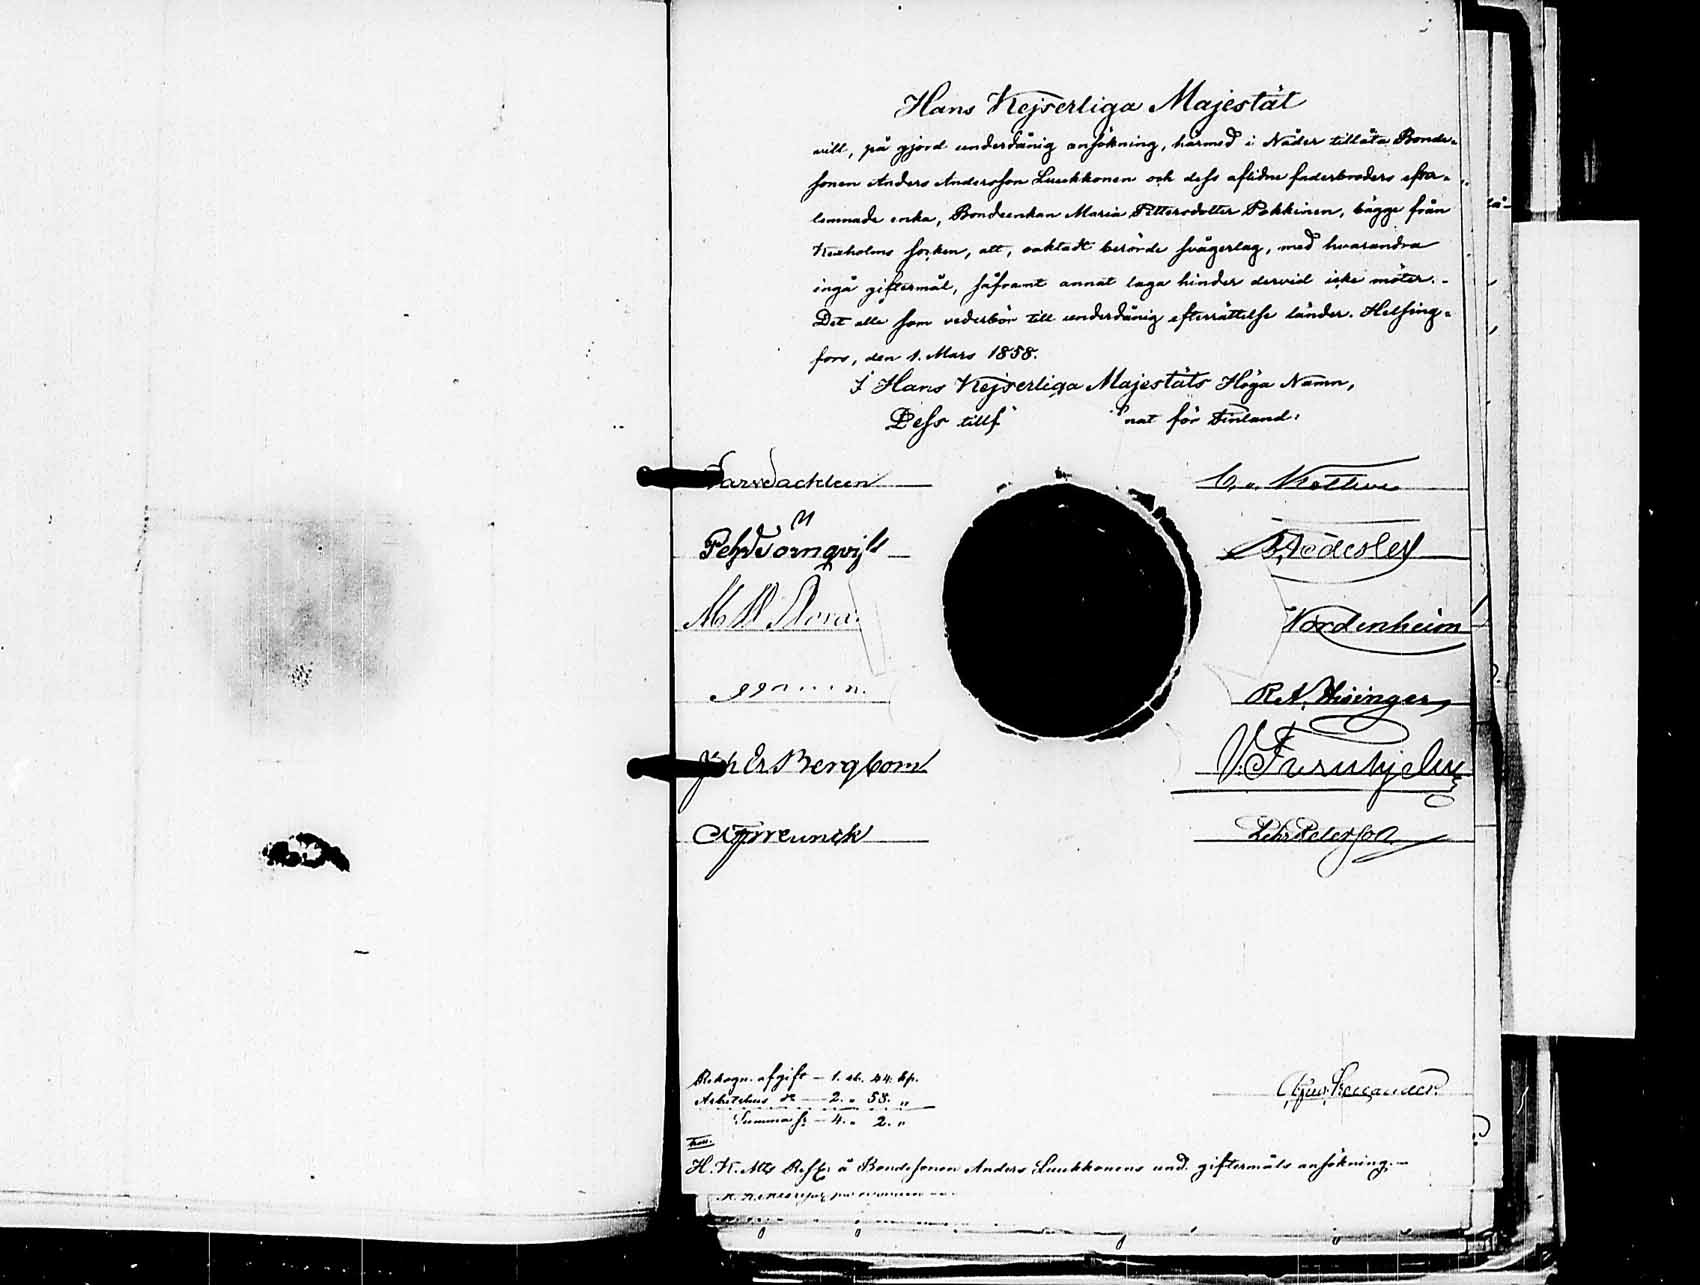 Hans Kejserliga Majestät
vill, på gjord underdånig ansökning, härmed i Nåder tillåta Bonde-
sonen Anders Andersson Luukkonen och dess aflidne faderbroders efter-
lemnade enka, Bondeenkan Maria Pettersdotter Pokkinen, bägge från
Kexholms socken, att, oaktadt berörde svågerlag, med hvarandra
ingå giftermål, såframt annat laga hinder dervid icke möter.-
Det alla som vederbör till underdånig efterrättelse länder. Helsing-
fors, den 1. Mars 1858.
I Hans Kejserliga Majestäts Höga Namn,
Dess tillf nat för Finland:
Lars Sackleen
C. v. Kothen
Pehr Törnqvist
Fr. Stewen
Nordenheim
R. V. Hisinger
Joh Er Bergbom
V. Furuhjelm
Pehr Peterson
Rekogn. afgift - 1. rub. 44. kp.
Arbetshus do - 2. " 58. "
Summa Sr - 4. " 2. "
H. K. Mts Resol. å Bondesonen Anders Luukkonens und. giftermåls ansökning.-